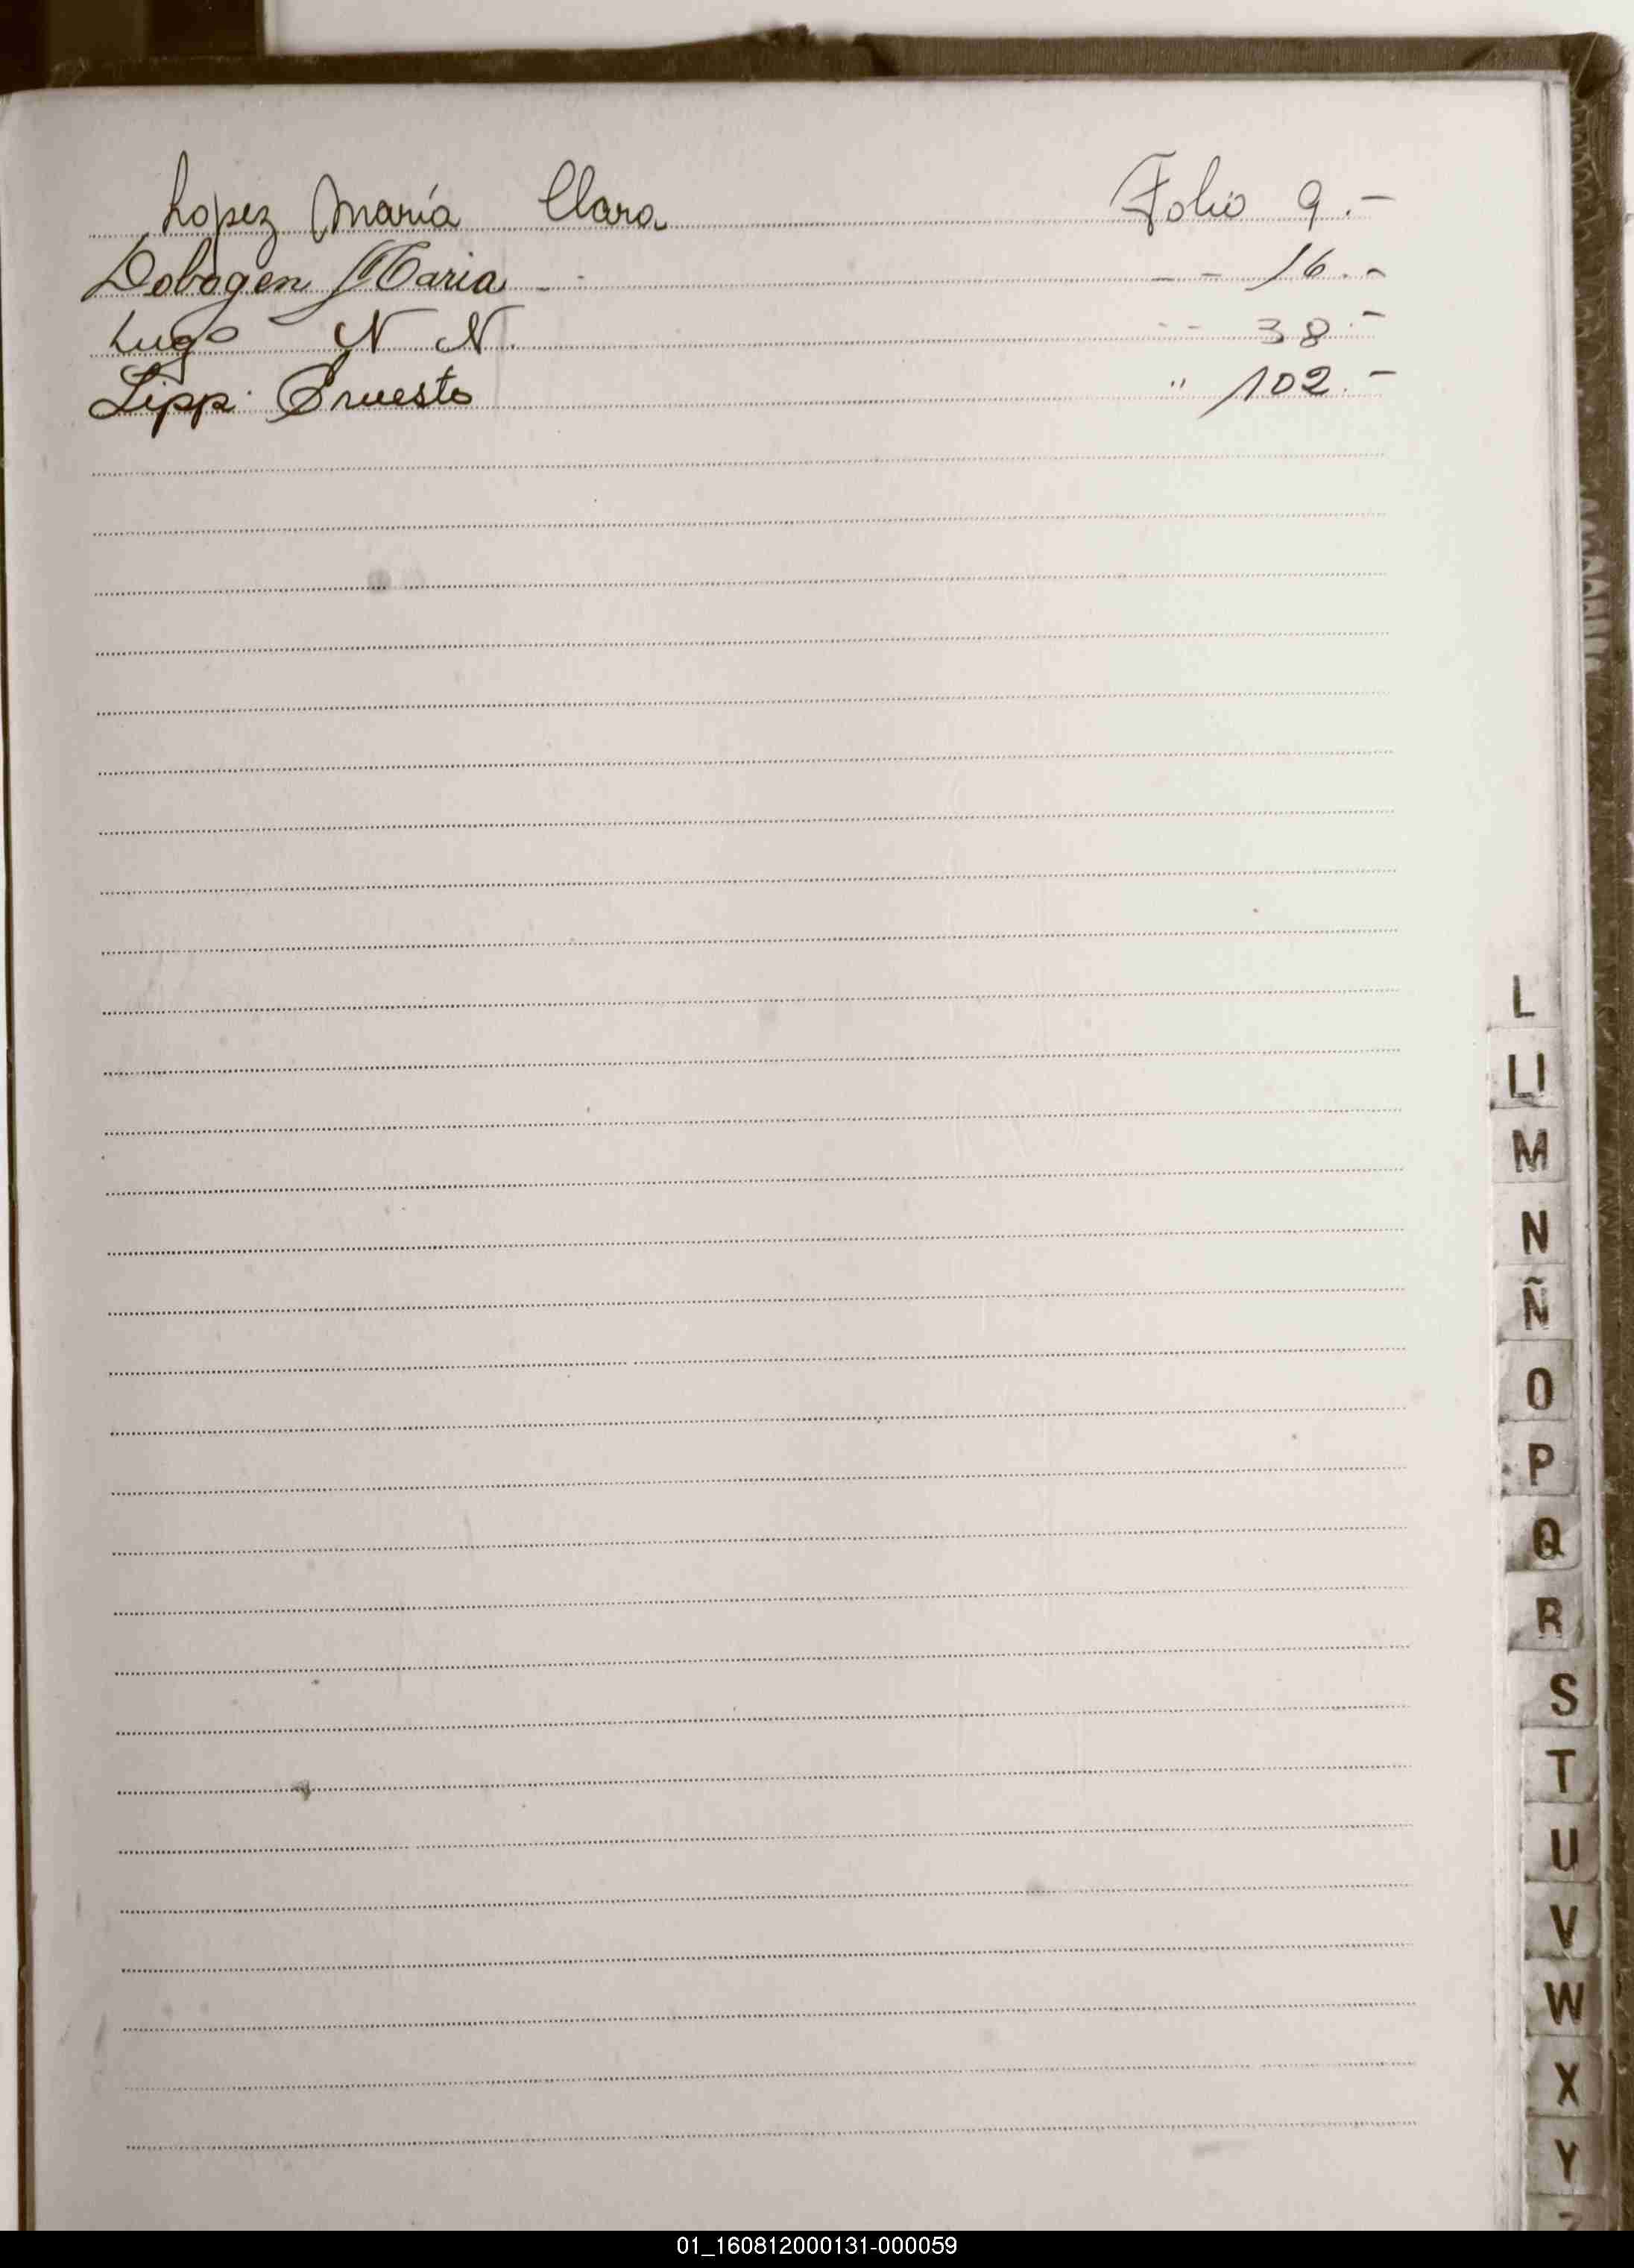 Lopez María Clara Folio 9.-
Lobogen Maria - - - - 16.-
Lugo N N. - - 38.-
Lipp. Ernesto " 102.-
L
Ll
M
N
Ñ
O
P
Q
R
S
T
U
V
W
X
Y
Z
01_160812000131-000059